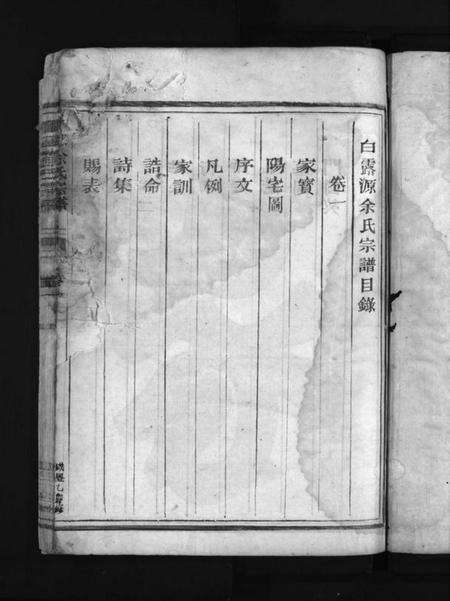 白露源余氏宗譜目錄
卷一
家寶
陽宅圖
序文
凡例
家訓
誥命
詩集
賜表